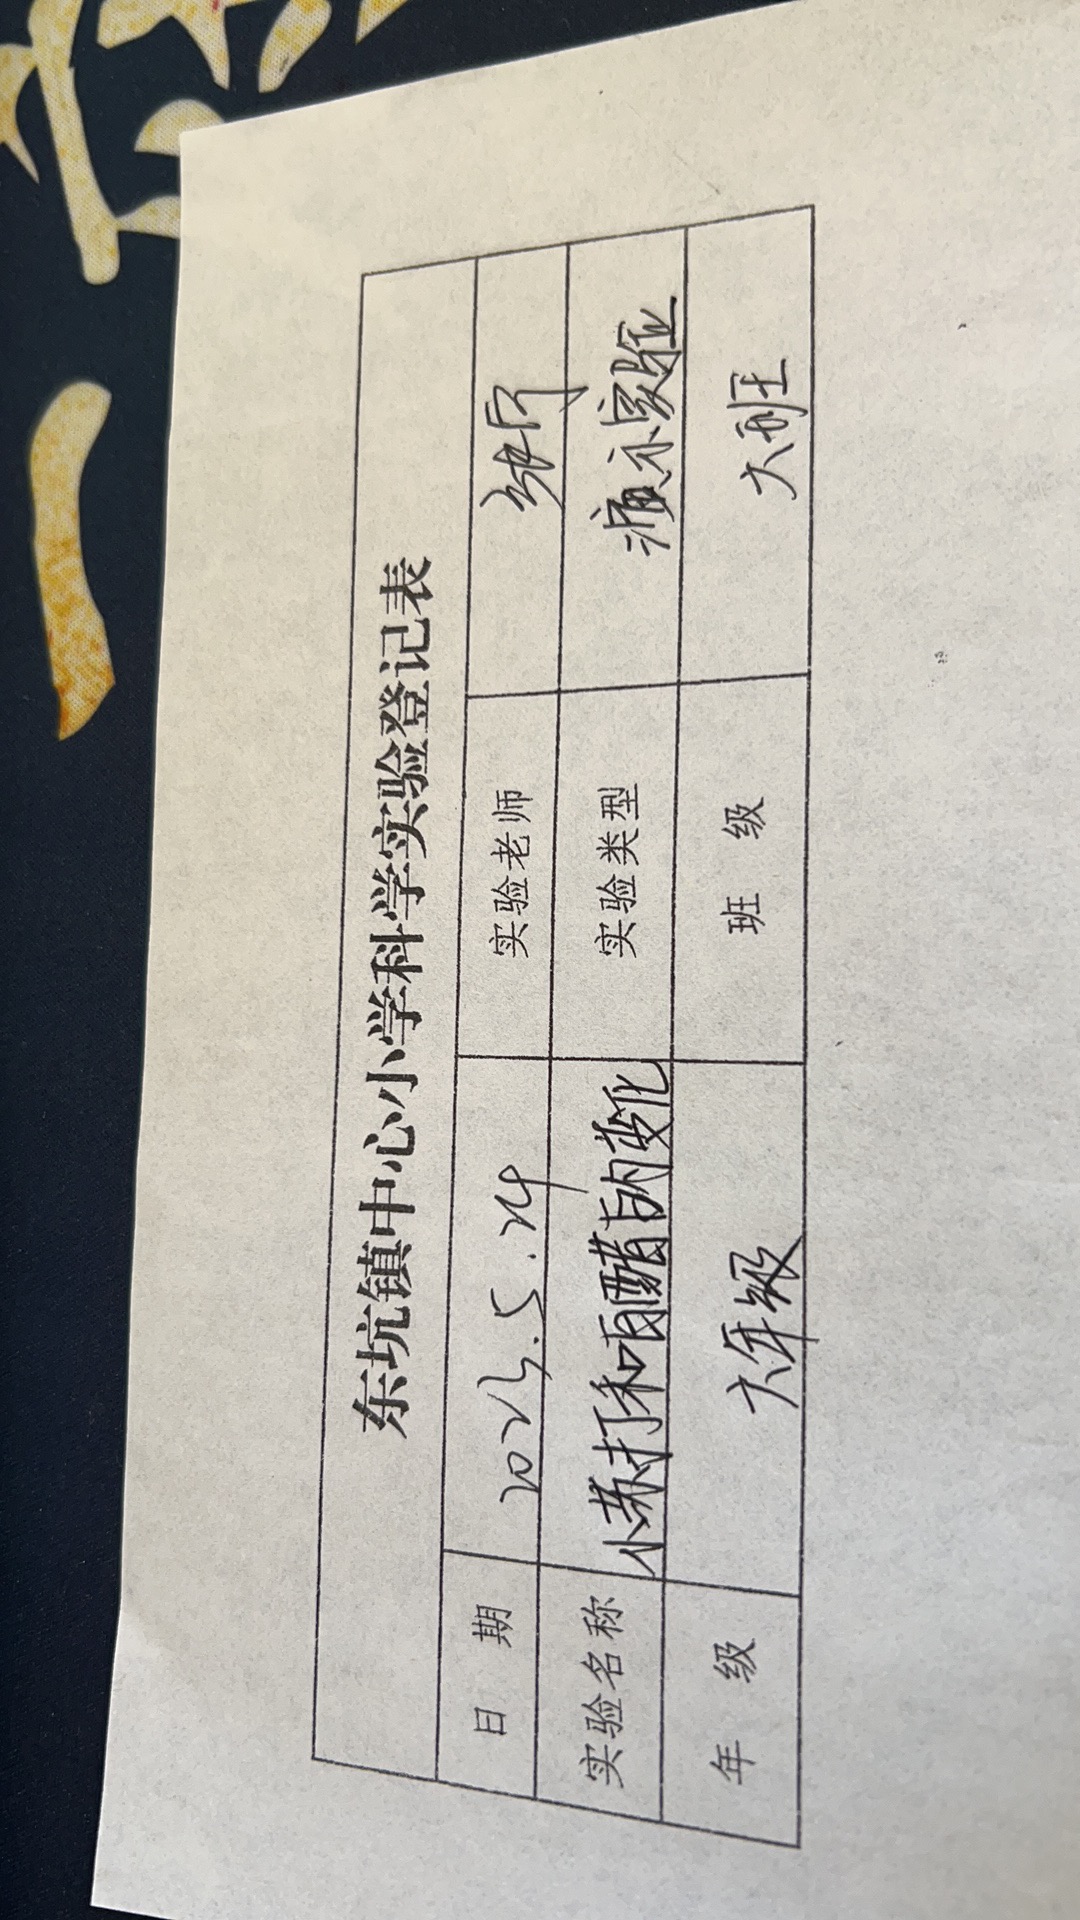 东坑镇中心小学科学实验登记表
日 期 2023.5.24 实验老师
实验名称 小苏打和白醋的变化 实验类型 演示实验
年 级 六年级 班 级 六班